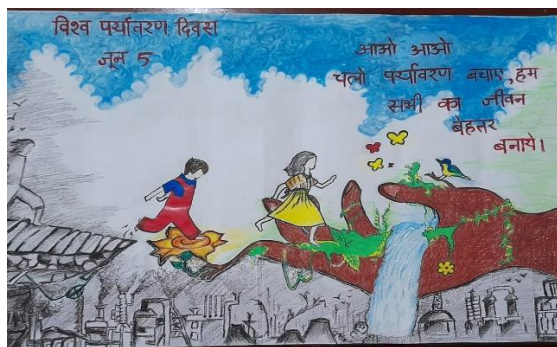 विश्व पर्यावरण दिवस
जून 5
आओ आओ
चलो पर्यावरण बचाए, हम
सभी का जीवन
बेहतर
बनाये।